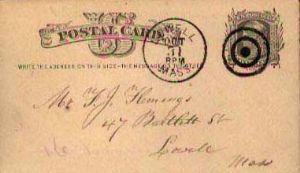 POSTAL CARD
WRITE THE ADDRESS ON THIS SIDE - THE MESSAGE ON THE OTHER
LOWELL
OCT
11
PM
MASS
Mr F. J. Flemings
47 Bartlett St
Lowell
Mass